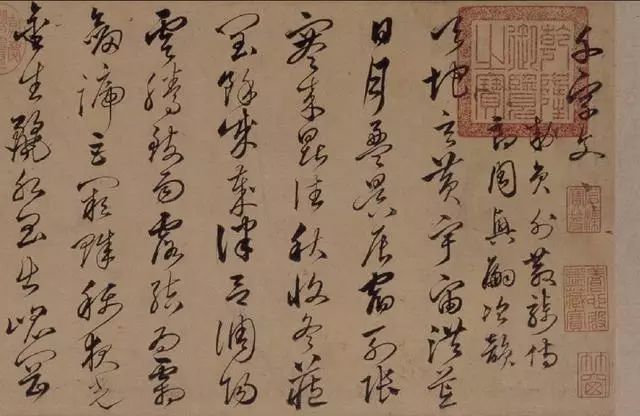 千字文
勑員外散騎侍
郎周興嗣次韻
天地玄黃宇宙洪荒
日月盈昃辰宿列張
寒來暑往秋收冬藏
閏餘成歲律呂調陽
雲騰致雨露結為霜
劍號巨闕珠稱夜光
金生麗水玉出崑岡
乾隆御覽之寶